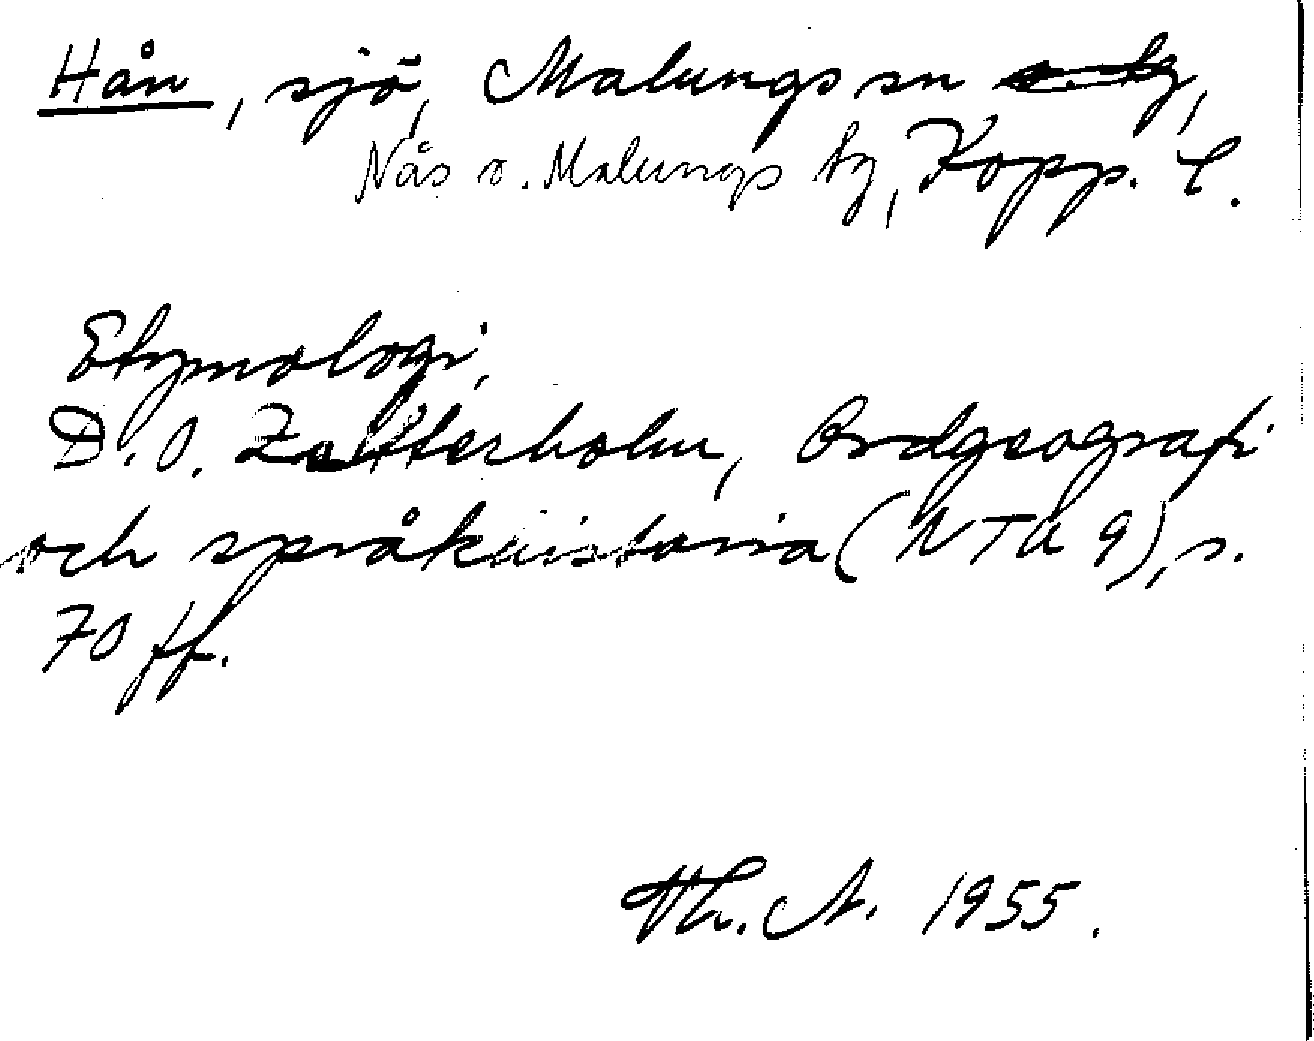 Hån, sjö, Malungs sn o. tg,
Nås o. Malungs tg, Kopp. l.
Etymologi.
D. O. Zetterholm, Ordgeografi
och språkhistoria (NTU 9), s.
70 ff.
Th. A. 1955.